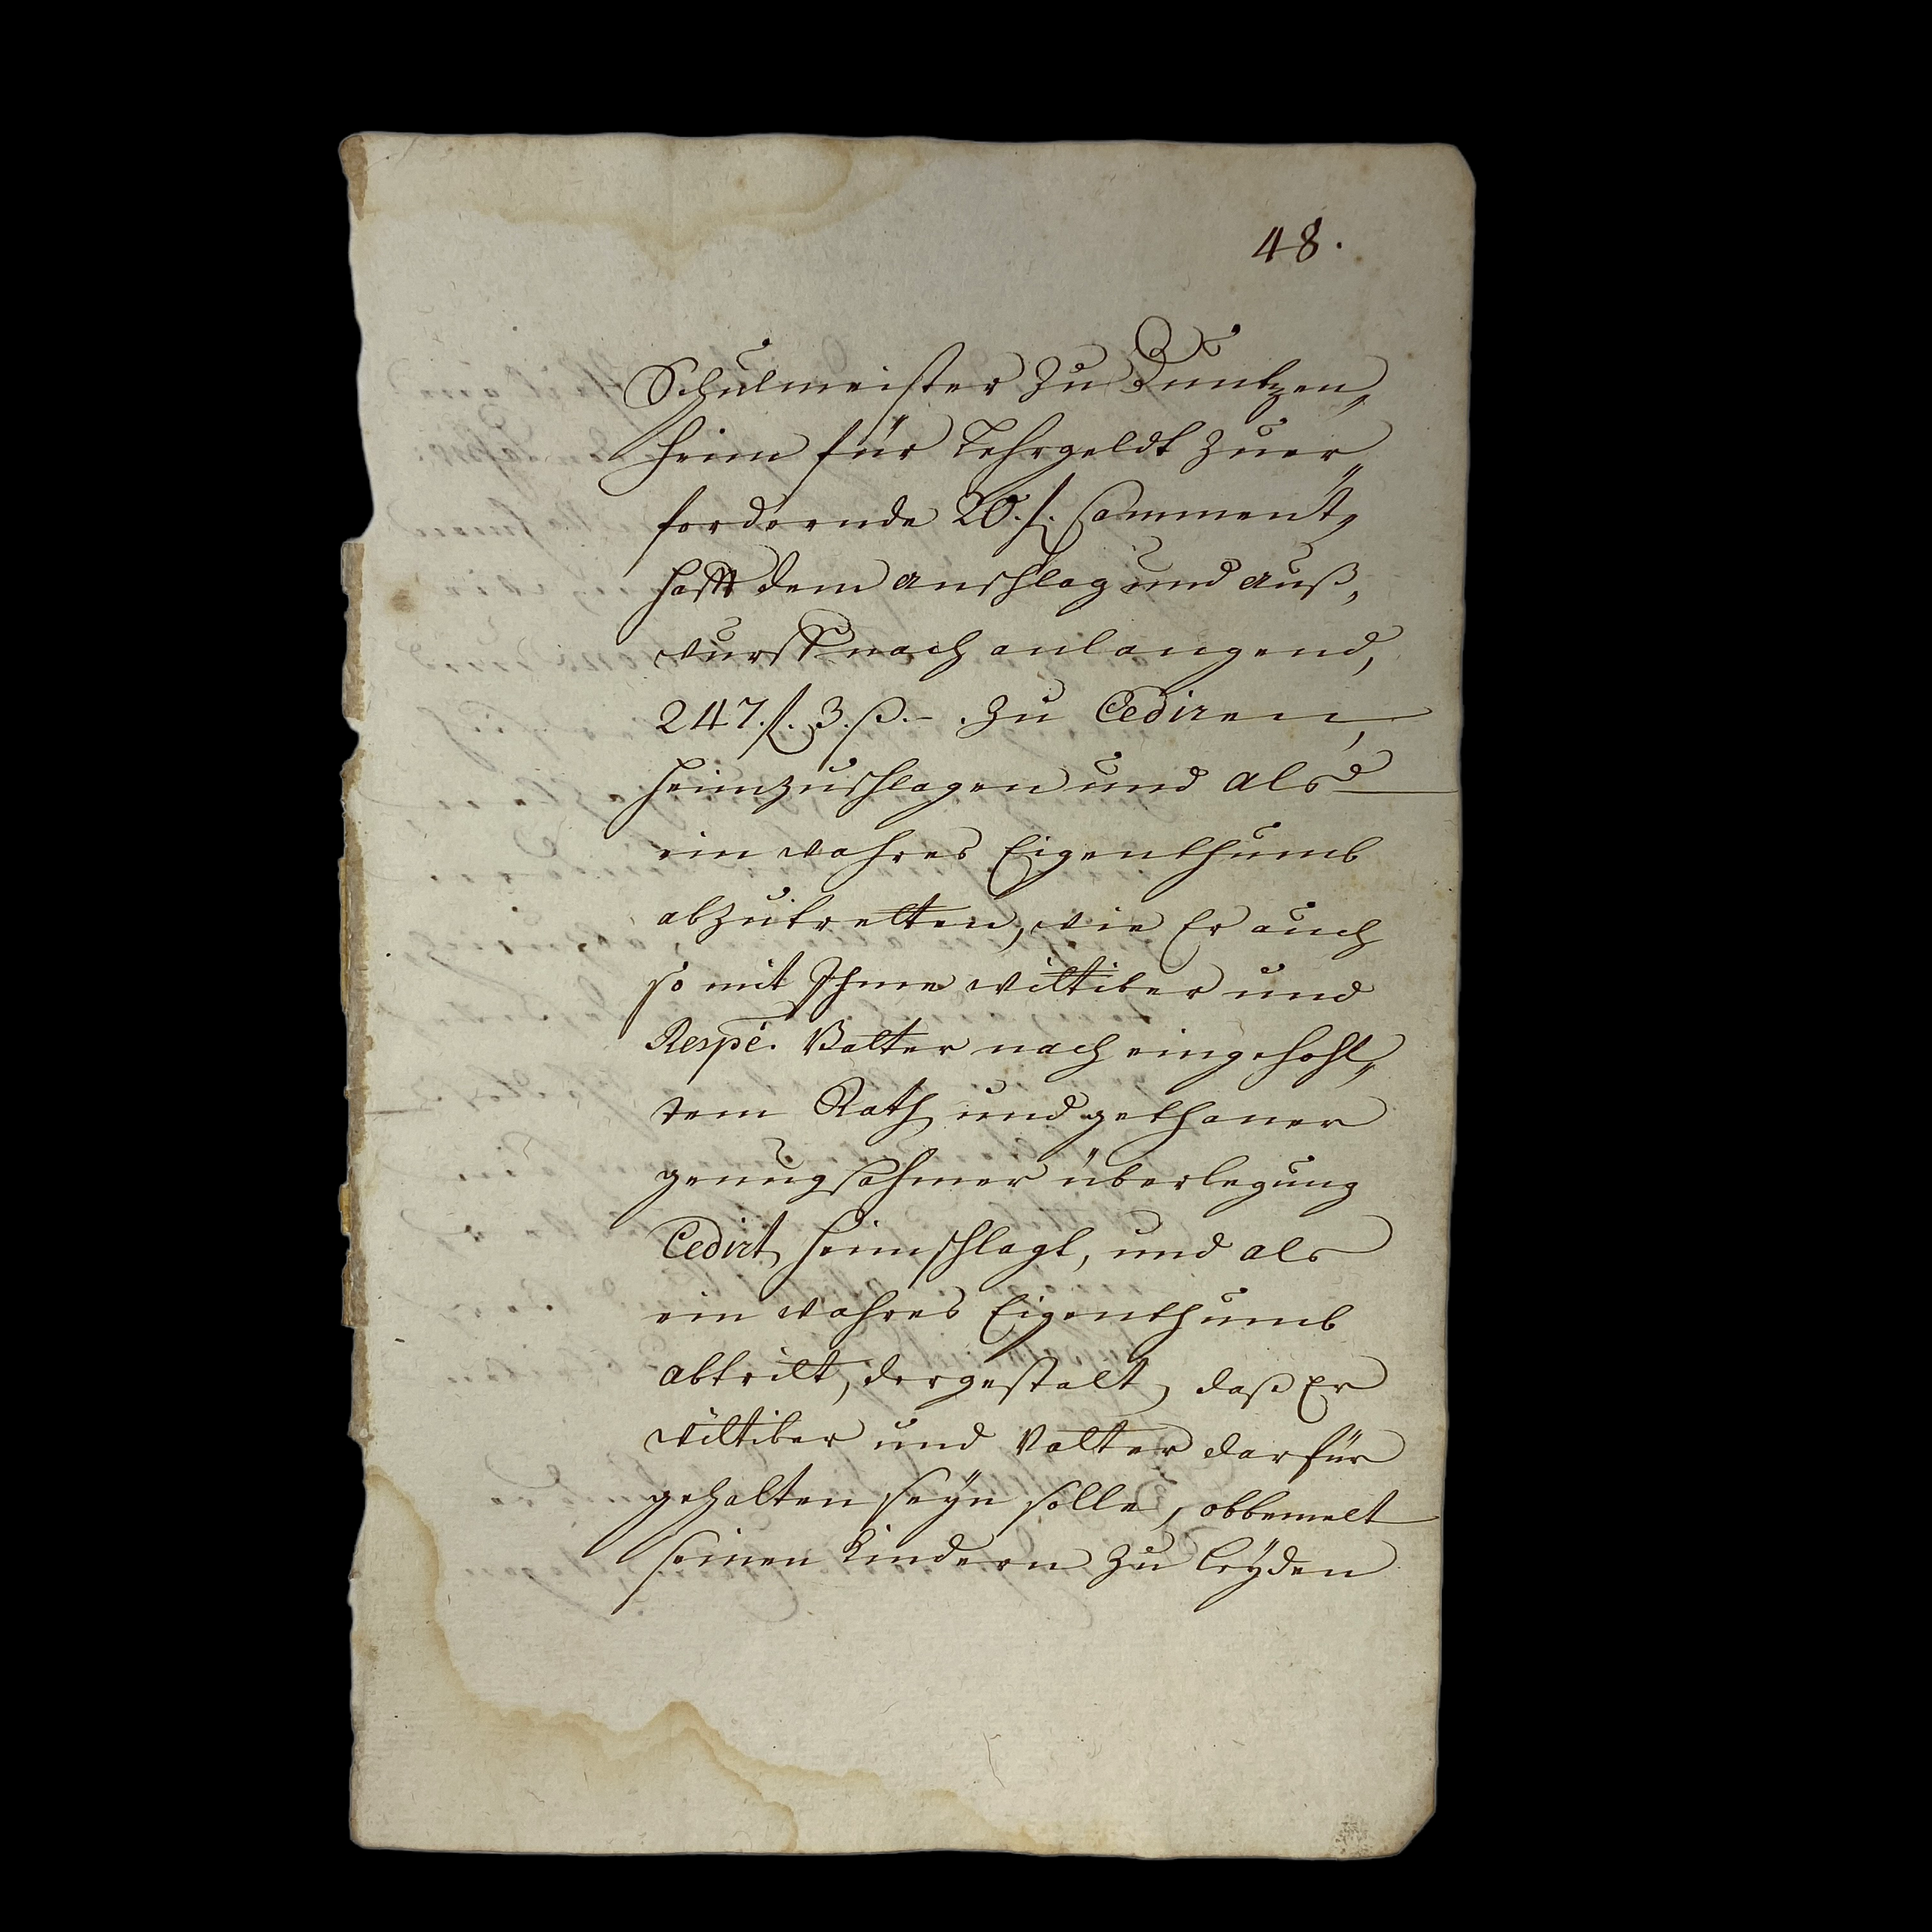 48.
Schulmeister zu Duntzen„
heim für Lehrgeldt zuer„
fordernde 20. f. samment„
hafft dem anschlag und auß„
wurff nach anlangend,
247. f. 3. ß. –. zu Cediren,
heimzuschlagen und als
ein wahres Eigenthumb
abzutretten, wie Er auch
so mit Ihme wittiber und
Respé. Vatter nach eingehohl„
tem Rath und gethaner
genugsahmer überlegung
Cedirt, heimschlagt, und als
ein wahres Eigenthumb
abtritt, dergestalt, daß Er
wittiber und Vatter darfür
gehalten seyn solle, obbemelt
seinen Kindern zu leyden